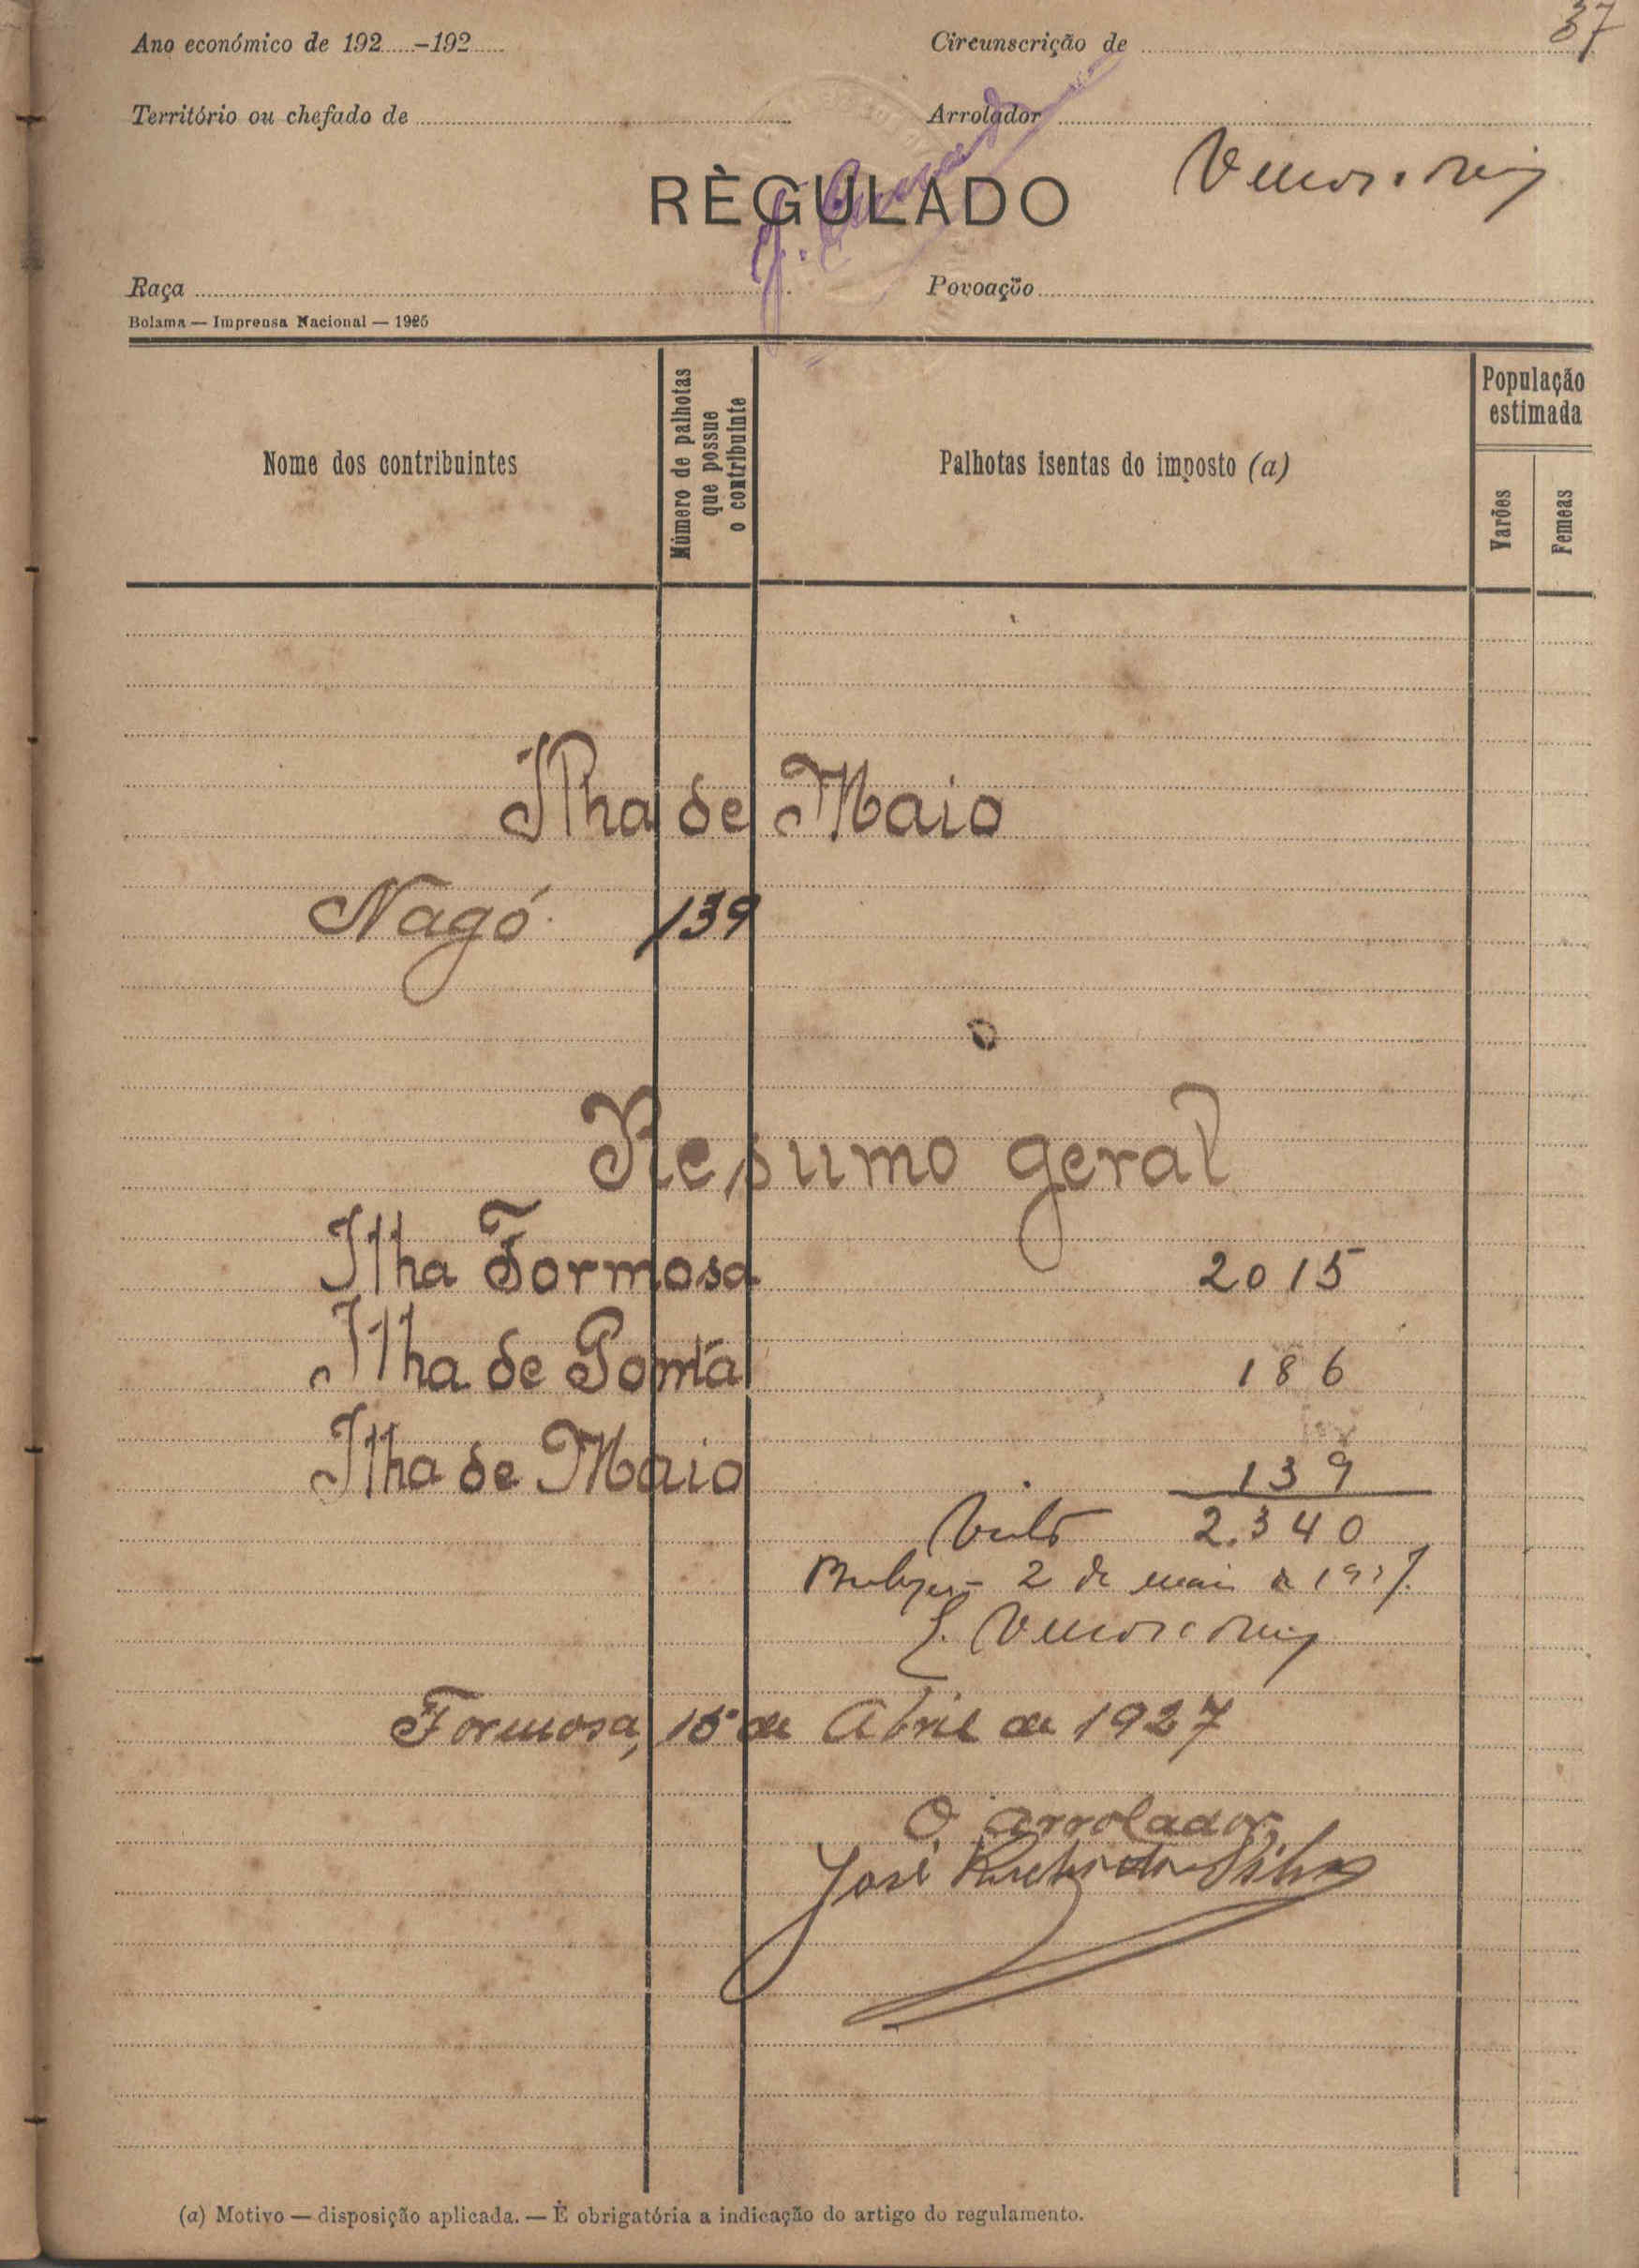 37
Ano económico de 192.....-192.....
Circunscrição de
Território ou chefado de
Arrolador
RÈGULADO
Raça
Povoação
Bolama — Imprensa Nacional — 1925
Nome dos contribuintes
Número de palhotas que possue o contribuinte
Palhotas isentas do imposto (a)
População estimada
Varões
Femeas
Ilha de Maio
Nagó 139
Resumo geral
Ilha Formosa 2015
Ilha de Ponta 186
Ilha de Maio 139
Visto 2.340
2 de maio de 1927.
Formosa, 15 de Abril de 1927
O arrolador,
José da Silva
(a) Motivo — disposição aplicada. — É obrigatória a indicação do artigo do regulamento.